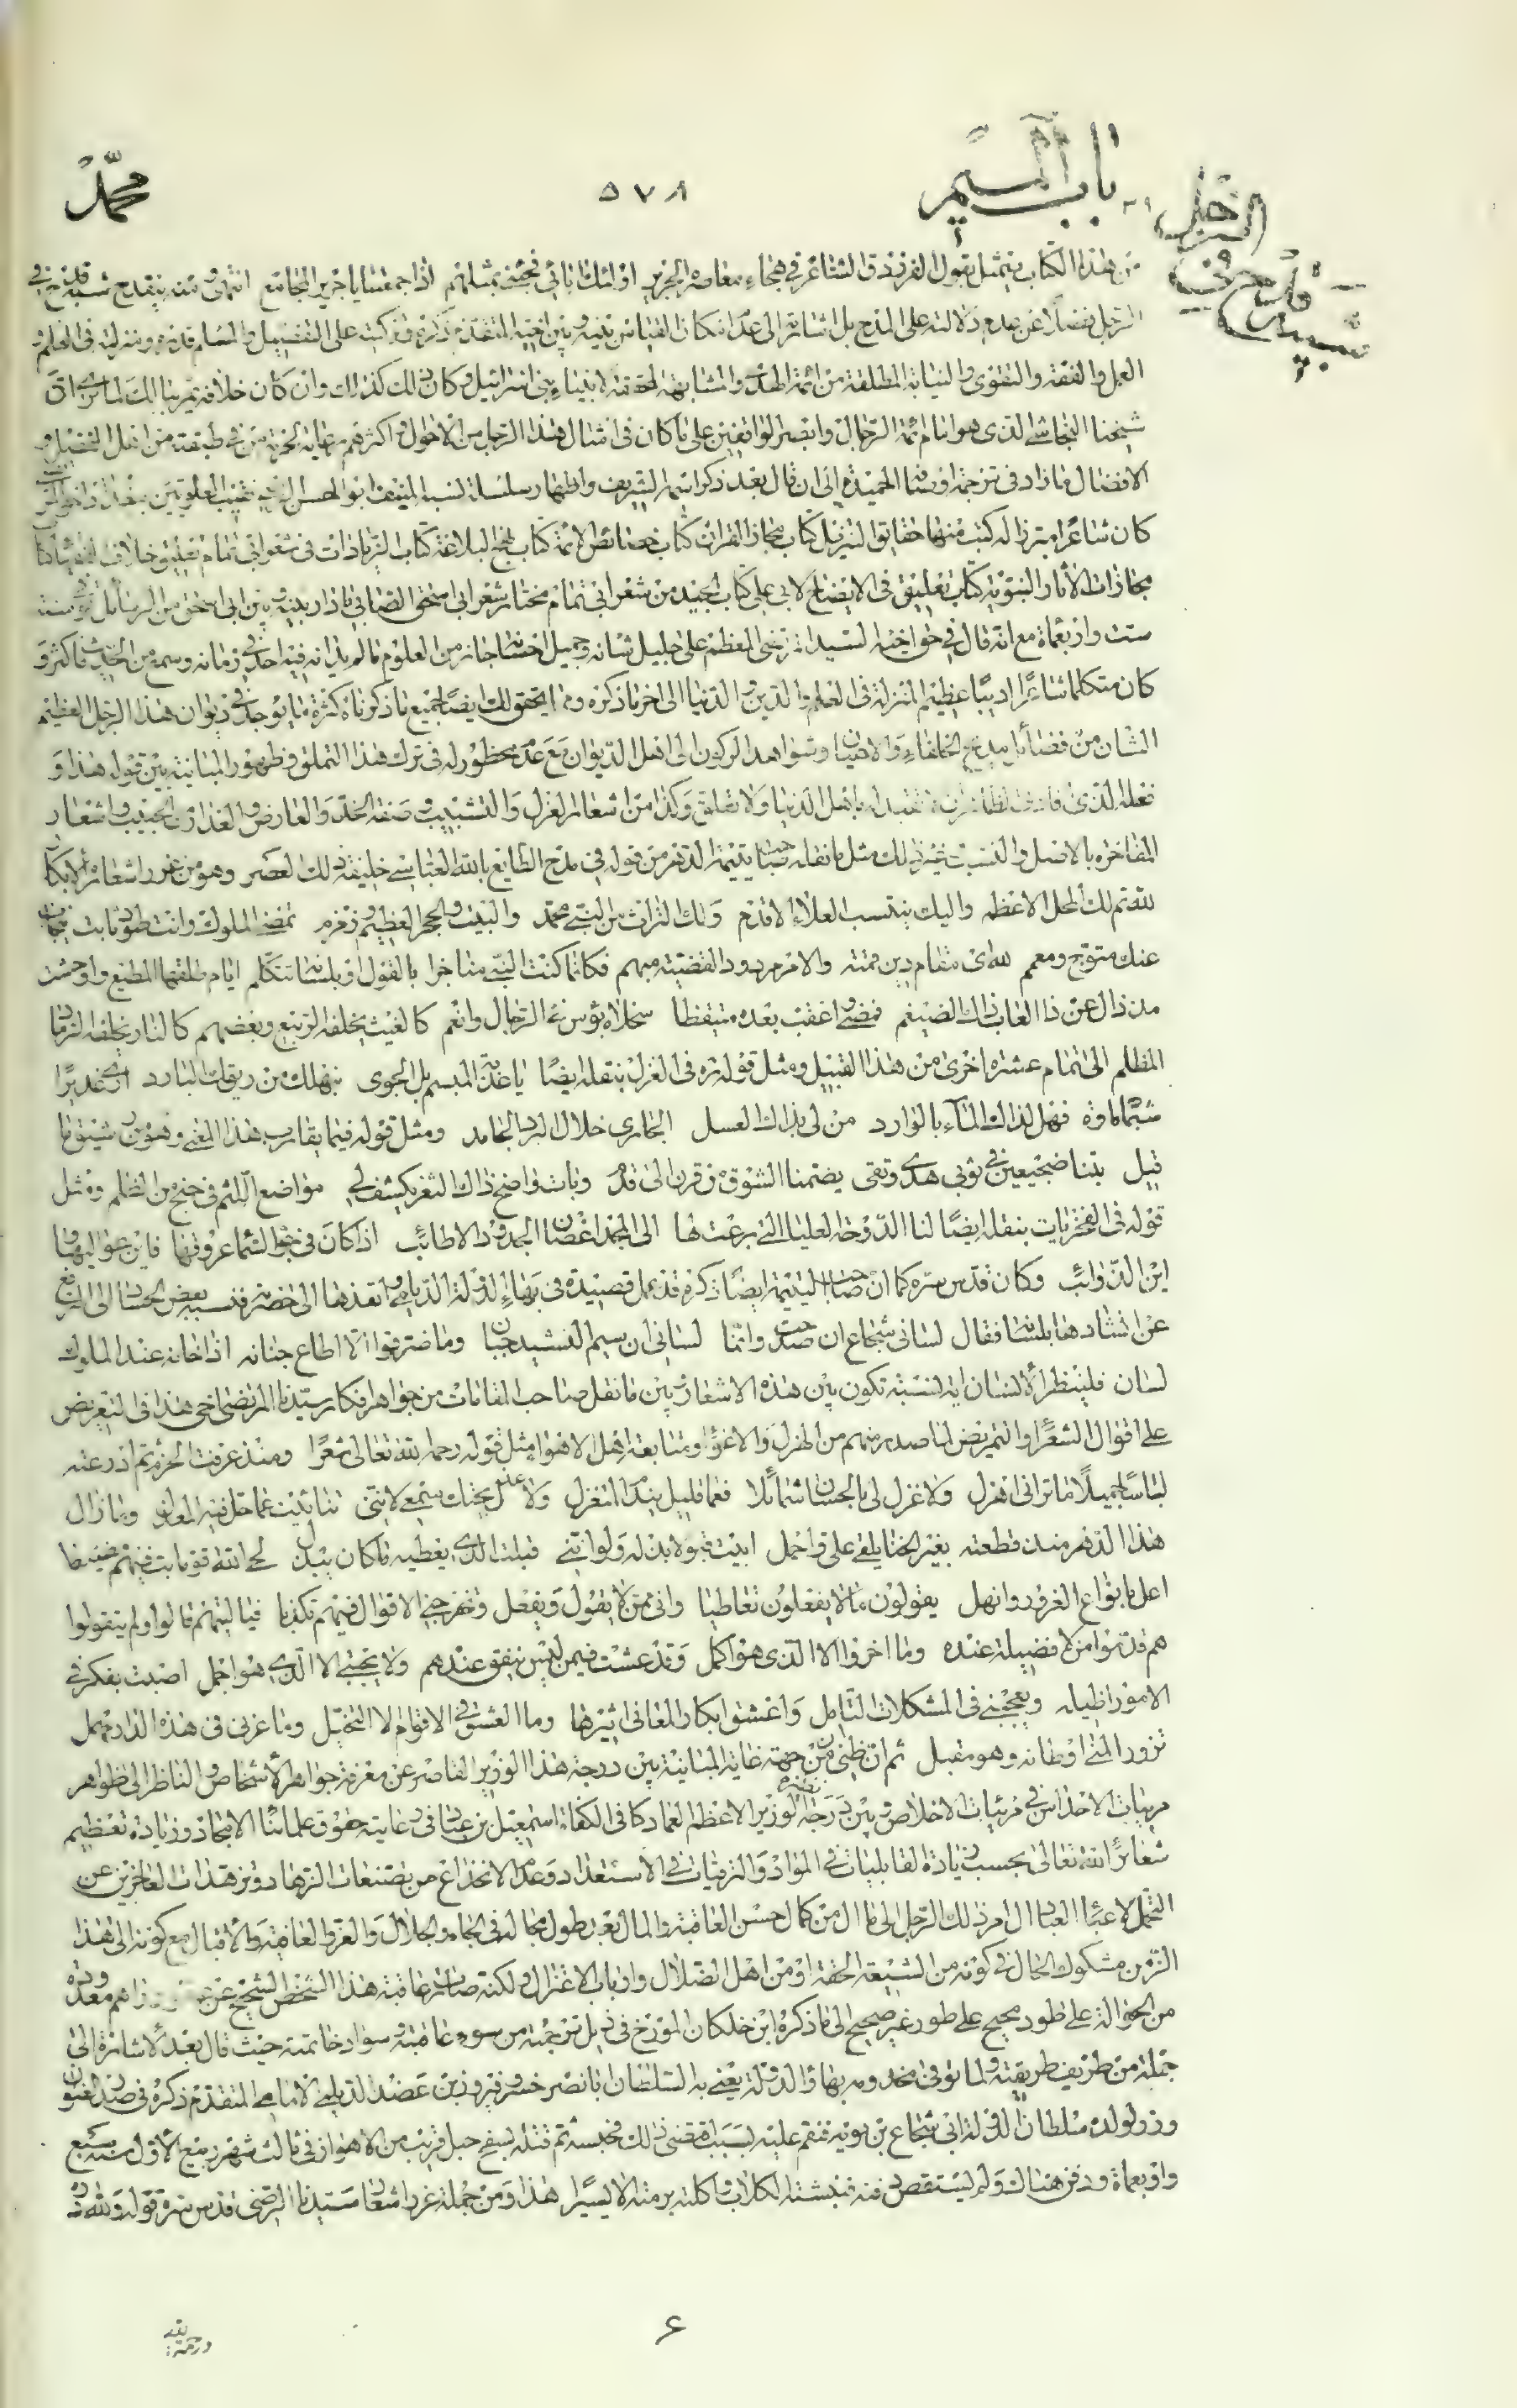 باب الميم
٥٧٨
محمد
من هذا الكتاب يتمثل بقول الفرزدق الشاعر في هجاء معاصره الجرير اولئك ابائي فجئني بمثلهم اذا جمعتنا يا جرير المجامع انتهى
الرجل فضلا عن عدم دلالته على المدح بل اشارته الى عدم امكان القياس بينه وبين اخيه المتقدم ذكره
العمل والفقه والتقوى والنيابة المطلقة من ائمة الهدى والمشابهة المحققة لانبياء بني اسرائيل وكان ذلك كذلك وان كان خلافه يمر ببالك لما ترى ان
شيخنا النجاشي الذي هو امام ائمة الرجال وابصر الواقفين على ما كان في امثال هذا الرجل من الاحوال واكثرهم رعاية لحرمة من في طبقته من اهل الفضل و
الافضال ما زاد في ترجمة اوصافه الحميدة الى ان قال بعد ذكر اسمه الشريف واظهار سلسلة نسبه المنيف ابو الحسن الرضي نقيب العلويين ببغداد اخو المرتضى
كان شاعرا مبرزا له كتب منها حقايق التنزيل كتاب مجاز القران كتاب خصائص الائمة كتاب نهج البلاغة كتاب الزيادات في شعر ابي تمام تعليق خلاف الفقهاء كتاب
مجازات الاثار النبوية كتاب تعليق في الايضاح لابي علي كتاب الجيد من شعر ابي تمام مختار شعر ابي اسحق الصابي ما دار بينه وبين ابي اسحق من الرسائل توفي سنة
ست واربعمائة مع انه قال في حق اخيه السيد المرتضى المعظم على جليل شانه وجميل احسانه حاز من العلوم ما لم يدانه فيه احد في زمانه وسمع من الحديث فاكثر و
كان متكلما شاعرا اديبا عظيم المنزلة في العلم والدين والدنيا الى اخر ما ذكره ومما يحقق لك ايضا جميع ما ذكرناه كثرة ما يوجد في ديوان هذا الرجل العظيم
الشان من قصائد مديح الخلفاء والاعيان وشواهد الركون الى اهل الديوان مع عدم محظور له في ترك هذا التملق وظهور المباينة بين قوله هذا و
فعله الذي باهل الدنيا ولا تعلق وكذا من اشعار الغزل والتشبيب وصفة الخد والعارض والعذار من الحبيب واشعار
المفاخره بالاصل والنسب غير ذلك مثل ما نقله صاحب يتيمة الدهر من قوله في مدح الطايع بالله العباسي خليفة ذلك العصر وهو من غرر اشعاره الابكار
لله ثم لك المحل الاعظم واليك ينتسب العلاء الاقدم ولك التراث من النبي محمد والبيت والحجر العظيم وزمزم تمضي الملوك وانت طود ثابت ينجاب
عنك متوج ومعمم لله اي مقام دين قمته والامر مردود القضية مبهم فكانما كنت النبي مناجزا بالقول او بلسانه تتكلم ايام طلقها المطيع واوحشت
مذ زال عن ذا الغاب ذاك الضيغم فمضى واعقب بعده متيقظا سجلاه بؤس في الرجال وانعم كالغيث يخلفه الربيع وبعضهم كالنار يخلفه الزمان
المظلم الى تمام عشرة اخرى من هذا القبيل ومثل قوله ره في الغزل بنقله ايضا يا عذبة المبسم بلي الجوى بنهلة من ريقك البارد ارى غديرا
شبما ماؤه فهل لذاك الماء بالوارد من لي بذاك العسل الجاري خلال البرد الجامد ومثل قوله فيما يقارب هذا المعنى وهو من شيق ما
قيل بتنا ضجيعين في ثوبي هدى وتقى يضمنا الشوق من قرن الى قدم وبات واضح ذاك الثغر يكشف لي مواضع اللثم في جنح من الظلم ومثل
قوله في الفخريات بنقله ايضا لنا الدوحة العليا التي برعت لها الى المجد اغصان الجدود الاطائب اذا كان في جو السماء عروقها فاين عواليها و
اين الذوائب وكان قدس سره كما ان صاحب اليتيمة ايضا ذكره قد عمل قصيدة في بهاء الدولة الديلمي وانفذها الى حضرته فنسبه بعض الحساد الى الترفع
عن انشادها بلسانه فقال لساني شجاع ان صمت وانما لساني ان سيم النشيد جبان وما ضر قوالا اطاع جنانه اذا خانه عند الملوك
لسان فلينظر الانسان اية نسبة تكون بين هذه الاشعار وبين ما نقل صاحب المقامات من جواهر افكار سيدنا المرتضى اخي هذا في التعريض
على اقوال الشعراء والتمريض لما صدر منهم من الهزل والاغواء ومتابعة اهل الاهواء مثل قوله رحمه الله تعالى شعرا ومنذ عرفت الحزم ثم ادرعته
لباسا جميلا ما تراني اهزل ولا غزل لي بالحسان شمائلا فما قليل بينما اتغزل ولا بسمعي لانني تناءيت عما حل فيه المعدل وما زال
هذا الدهر منذ قطعته بغير الخنا يلقى علي واحمل ابيت قبولا بذله ولو انني قبلت الذي يعطيه ما كان يبذل لحى الله قوما بت فيهم ضيفا
اعل بانواع الغرور وانهل يقولون ما لا يفعلون تعاطيا واني ممن لا يقول ويفعل فيا ليتهم قالوا ولم يتقولوا
هم قدموا من لا فضيلة عنده وما اخروا الا الذي هو اكمل وقد عشت فيمن ليس ينفق عندهم ولا يجتبى الا الذي هو اجمل اصبت بفكر في
الامور اطيله ويعجبني في المشكلات التامل واعشق ابكار المعاني اثيرها وما العشق في الاقوام الا التخيل وما غرني في هذه الدار مهمل
تزور المنى اوطانه وهو مقبل ثم ان ظني من جهة غاية المباينة بين درجة هذا الوزير القاصر عن معرفة جواهر الاشخاص والناظر الى ظواهر
وبين درجة الوزير الاعظم العماد كافي الكفاة اسمعيل بن عباد في رعاية حقوق علمائنا الامجاد وزيادة تعظيم
شعائر الله تعالى بحسب زيادة القابليات في المواد والترقيات في الاستعداد وعدم الانخداع من تصنعات الزهاد
التحمل لاعباء العباد ال امر ذلك الرجل الى ما ال من كمال حسن العاقبة والمال بعد طول مجاله في الجاه والجلال والعز والعافية والاقبال مع كونه الى هذا
الزمن مشكوك الحال في كونه من الشيعة الحقة او من اهل الضلال وارباب الاعتزال ولكنه صار امر عاقبة هذا الشخص
من الحوالة على طور صحيح على طور غير صحيح الى ما ذكره ابن خلكان المورخ في ذيل ترجمته من سوء عاقبته وسواد خاتمته حيث قال بعد الاشارة الى
جملة من طريف طريقته ولما توفي مخدومه بهاء الدولة يعني به السلطان ابا نصر خسرو فيروز بن عضد الديلمي الامامي المتقدم ذكره في صدر العنوان
وزر لولده سلطان الدولة ابي شجاع بن بويه فنقم عليه بسبب اقتضى ذلك فحبسه ثم قتله بسفح جبل قريب من الاهواز في ثالث شهر ربيع الاول سنة سبع
واربعمائة ودفن هناك ولم يستقص دفنه فنبشته الكلاب واكلته برمته الا يسيرا هذا ومن جملة غرر اشعار سيدنا الرضي قدس سره قوله ولله در